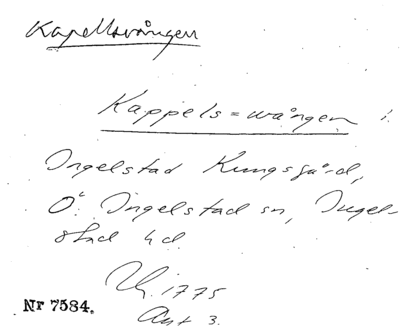 Kapellsvången
Kappels=wången i
Ingelstad Kungsgård,
Ö. Ingelstad sn, Ingel-
stad hd.
1775
Akt 3.
Nr 7584.